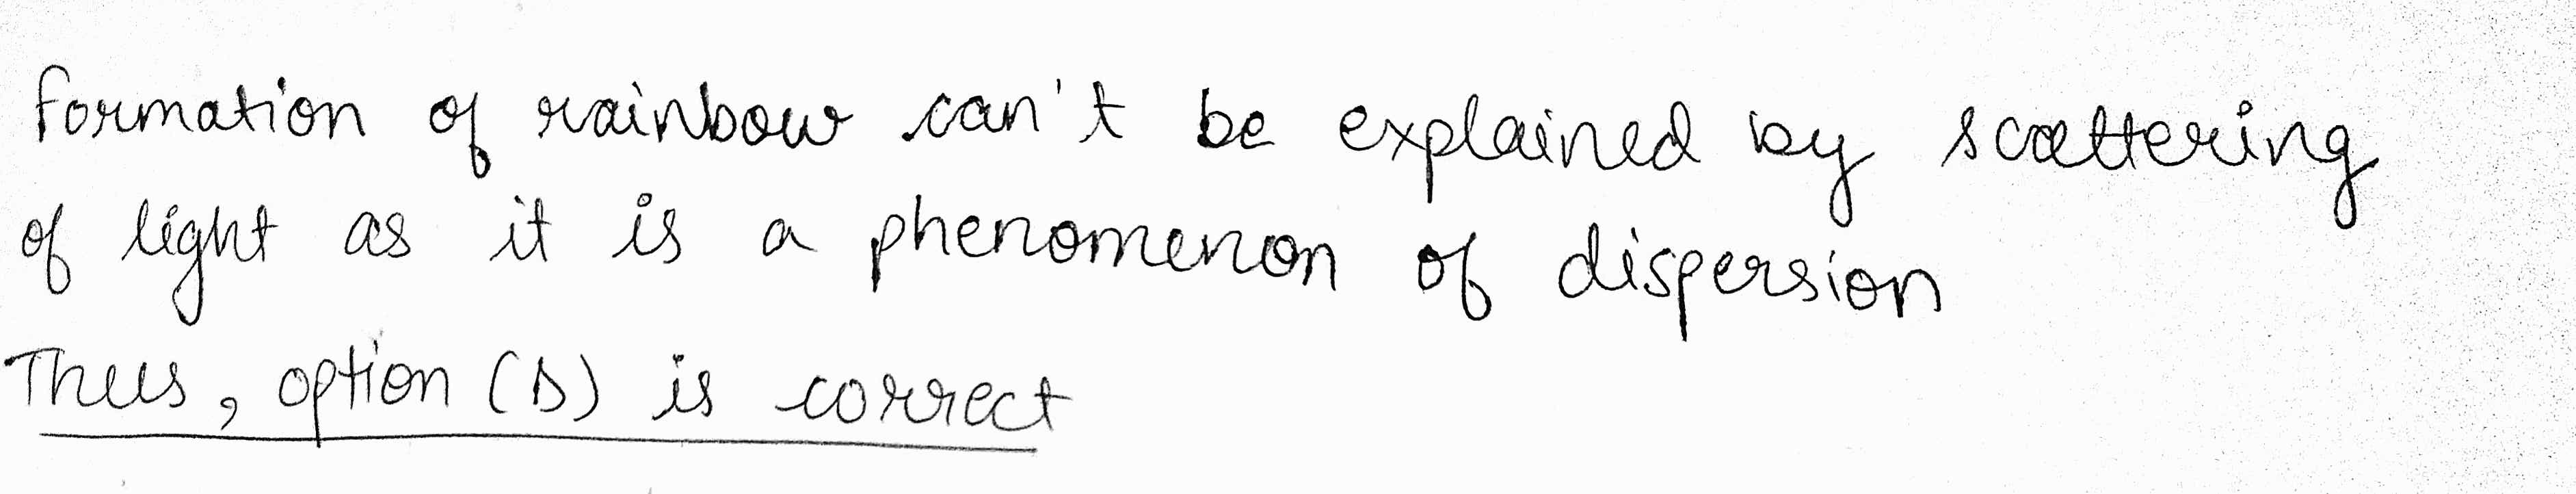 formation of rainbow can't be explained by scattering
of light as it is a phenomenon of dispersion
Thus, option (D) is correct